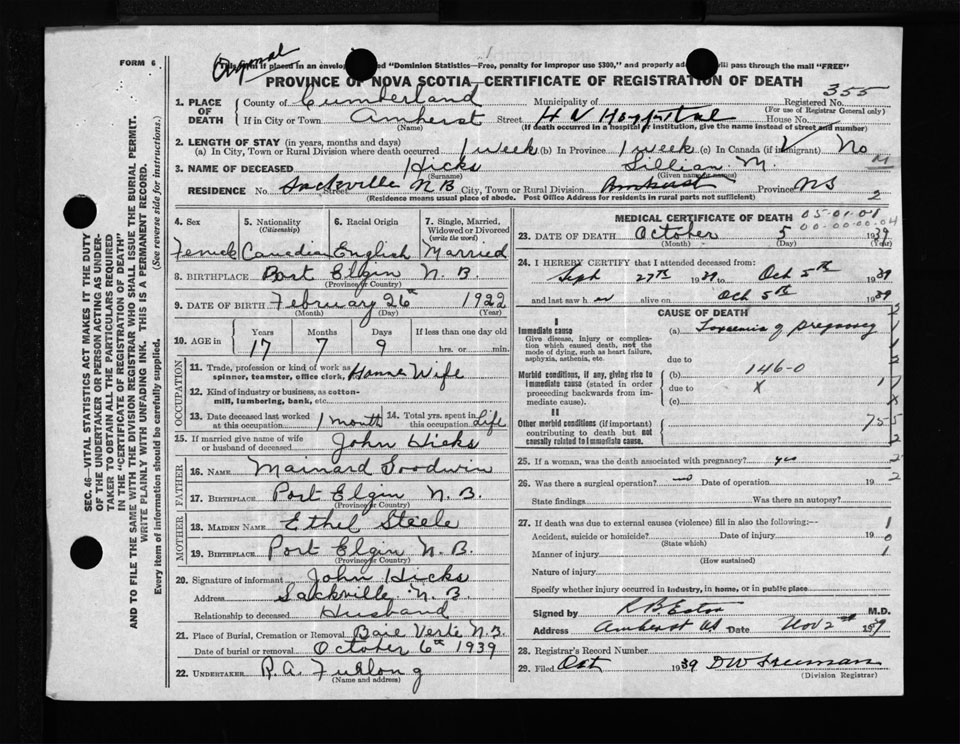 FORM 6
Original
This form if placed in an envelope marked "Dominion Statistics—Free, penalty for improper use $300," and properly addressed will pass through the mail "FREE"
PROVINCE OF NOVA SCOTIA—CERTIFICATE OF REGISTRATION OF DEATH
355
1. PLACE OF DEATH County of Cumberland Municipality of Registered No.
(For use of Registrar General only)
If in City or Town Amherst Street H V Hospital House No.
(Name) (If death occurred in a hospital or institution, give the name instead of street and number)
2. LENGTH OF STAY (in years, months and days)
(a) In City, Town or Rural Division where death occurred 1 week (b) In Province 1 week (c) In Canada (if immigrant) No
3. NAME OF DECEASED Hicks Lillian M.
(Surname) (Given name or names)
RESIDENCE No. Street Sackville N B City, Town or Rural Division Amherst Province NS 2
(Residence means usual place of abode. Post Office Address for residents in rural parts not sufficient)
4. Sex 5. Nationality (Citizenship) 6. Racial Origin 7. Single, Married, Widowed or Divorced (write the word)
Canadian English Married
8. BIRTHPLACE Port Elgin N. B.
(Province or Country)
9. DATE OF BIRTH February 26th 1922
(Month) (Day) (Year)
10. AGE in Years Months Days If less than one day old
17 7 9 hrs. or min.
OCCUPATION
11. Trade, profession or kind of work as spinner, teamster, office clerk, Wife
12. Kind of industry or business, as cotton-mill, lumbering, bank, etc.
13. Date deceased last worked at this occupation 1 month 14. Total yrs. spent in this occupation Life
15. If married give name of wife or husband of deceased John Hicks
FATHER
16. NAME Mainard Goodwin
17. BIRTHPLACE Port Elgin N. B.
(Province or Country)
MOTHER
18. MAIDEN NAME Ethel Steele
19. BIRTHPLACE Port Elgin N. B.
(Province or Country)
20. Signature of informant John Hicks
Address Sackville N. B.
Relationship to deceased Husband
21. Place of Burial, Cremation or Removal Baie Verte N.B.
Date of burial or removal October 6th 1939
22. UNDERTAKER R. A. Furlong
(Name and address)
MEDICAL CERTIFICATE OF DEATH 05-01-01
00-00-00-04
23. DATE OF DEATH October 5 1939
(Month) (Day) (Year)
24. I HEREBY CERTIFY that I attended deceased from:
Sept 27th 1939 to Oct 5th 1939
and last saw h er alive on Oct 5th 1939
CAUSE OF DEATH
I
Immediate cause (a) Toxaemia of pregnancy
Give disease, injury or complication which caused death, not the mode of dying, such as heart failure, asphyxia, asthenia, etc.
due to
Morbid conditions, if any, giving rise to immediate cause (stated in order proceeding backwards from immediate cause). (b) 146-0
due to X
(c)
II
Other morbid conditions (if important) contributing to death but not causally related to immediate cause.
25. If a woman, was the death associated with pregnancy? yes
26. Was there a surgical operation? no Date of operation 19
State findings Was there an autopsy?
27. If death was due to external causes (violence) fill in also the following:—
Accident, suicide or homicide? Date of injury 19
(State which)
Manner of injury
(How sustained)
Nature of injury
Specify whether injury occurred in industry, in home, or in public place
Signed by M.D.
Address Amherst NS Date Nov 2nd 1939
28. Registrar's Record Number
29. Filed Oct 1939 D W Freeman
(Division Registrar)
SEC. 46—VITAL STATISTICS ACT MAKES IT THE DUTY OF THE UNDERTAKER OR PERSON ACTING AS UNDERTAKER TO OBTAIN ALL THE PARTICULARS REQUIRED IN THE "CERTIFICATE OF REGISTRATION OF DEATH" AND TO FILE THE SAME WITH THE DIVISION REGISTRAR WHO SHALL ISSUE THE BURIAL PERMIT.
WRITE PLAINLY WITH UNFADING INK. THIS IS A PERMANENT RECORD.
Every item of information should be carefully supplied. (See reverse side for instructions.)